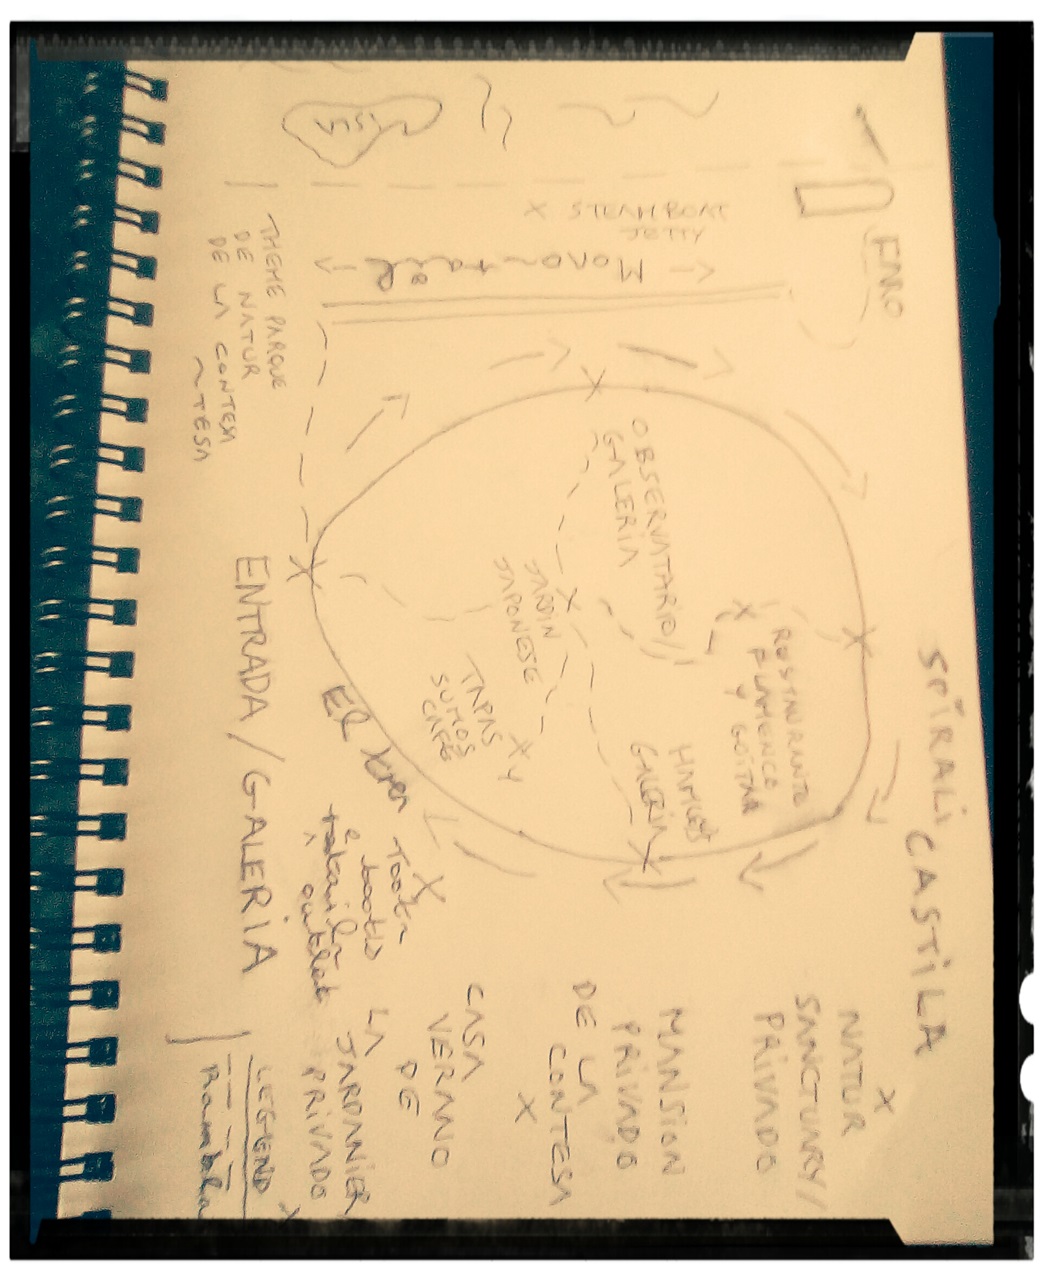 SPIRALi CASTILA
FARO
STEAMBOAT
JETTY
Monorail
THEME PARQUE
DE NATUR
DE LA CONTESA
~TESA
OBSERVATARIO/
GALERIA
JARDIN
JAPONESE
RESTAURANTE
FLAMENCO
Y GOITAR
HAMLET
GALERIA
TAPAS
SUMOS
CAFE
ENTRADA/GALERIA
El tren
Toots
e boots
retails
outlet
NATUR
SANCTUARY/
PRIVADO
MANSION
PRIVADO
DE LA
CONTESA
CASA
VERANO
DE
LA
JARDANIER
PRIVADO
LEGEND
Rambla